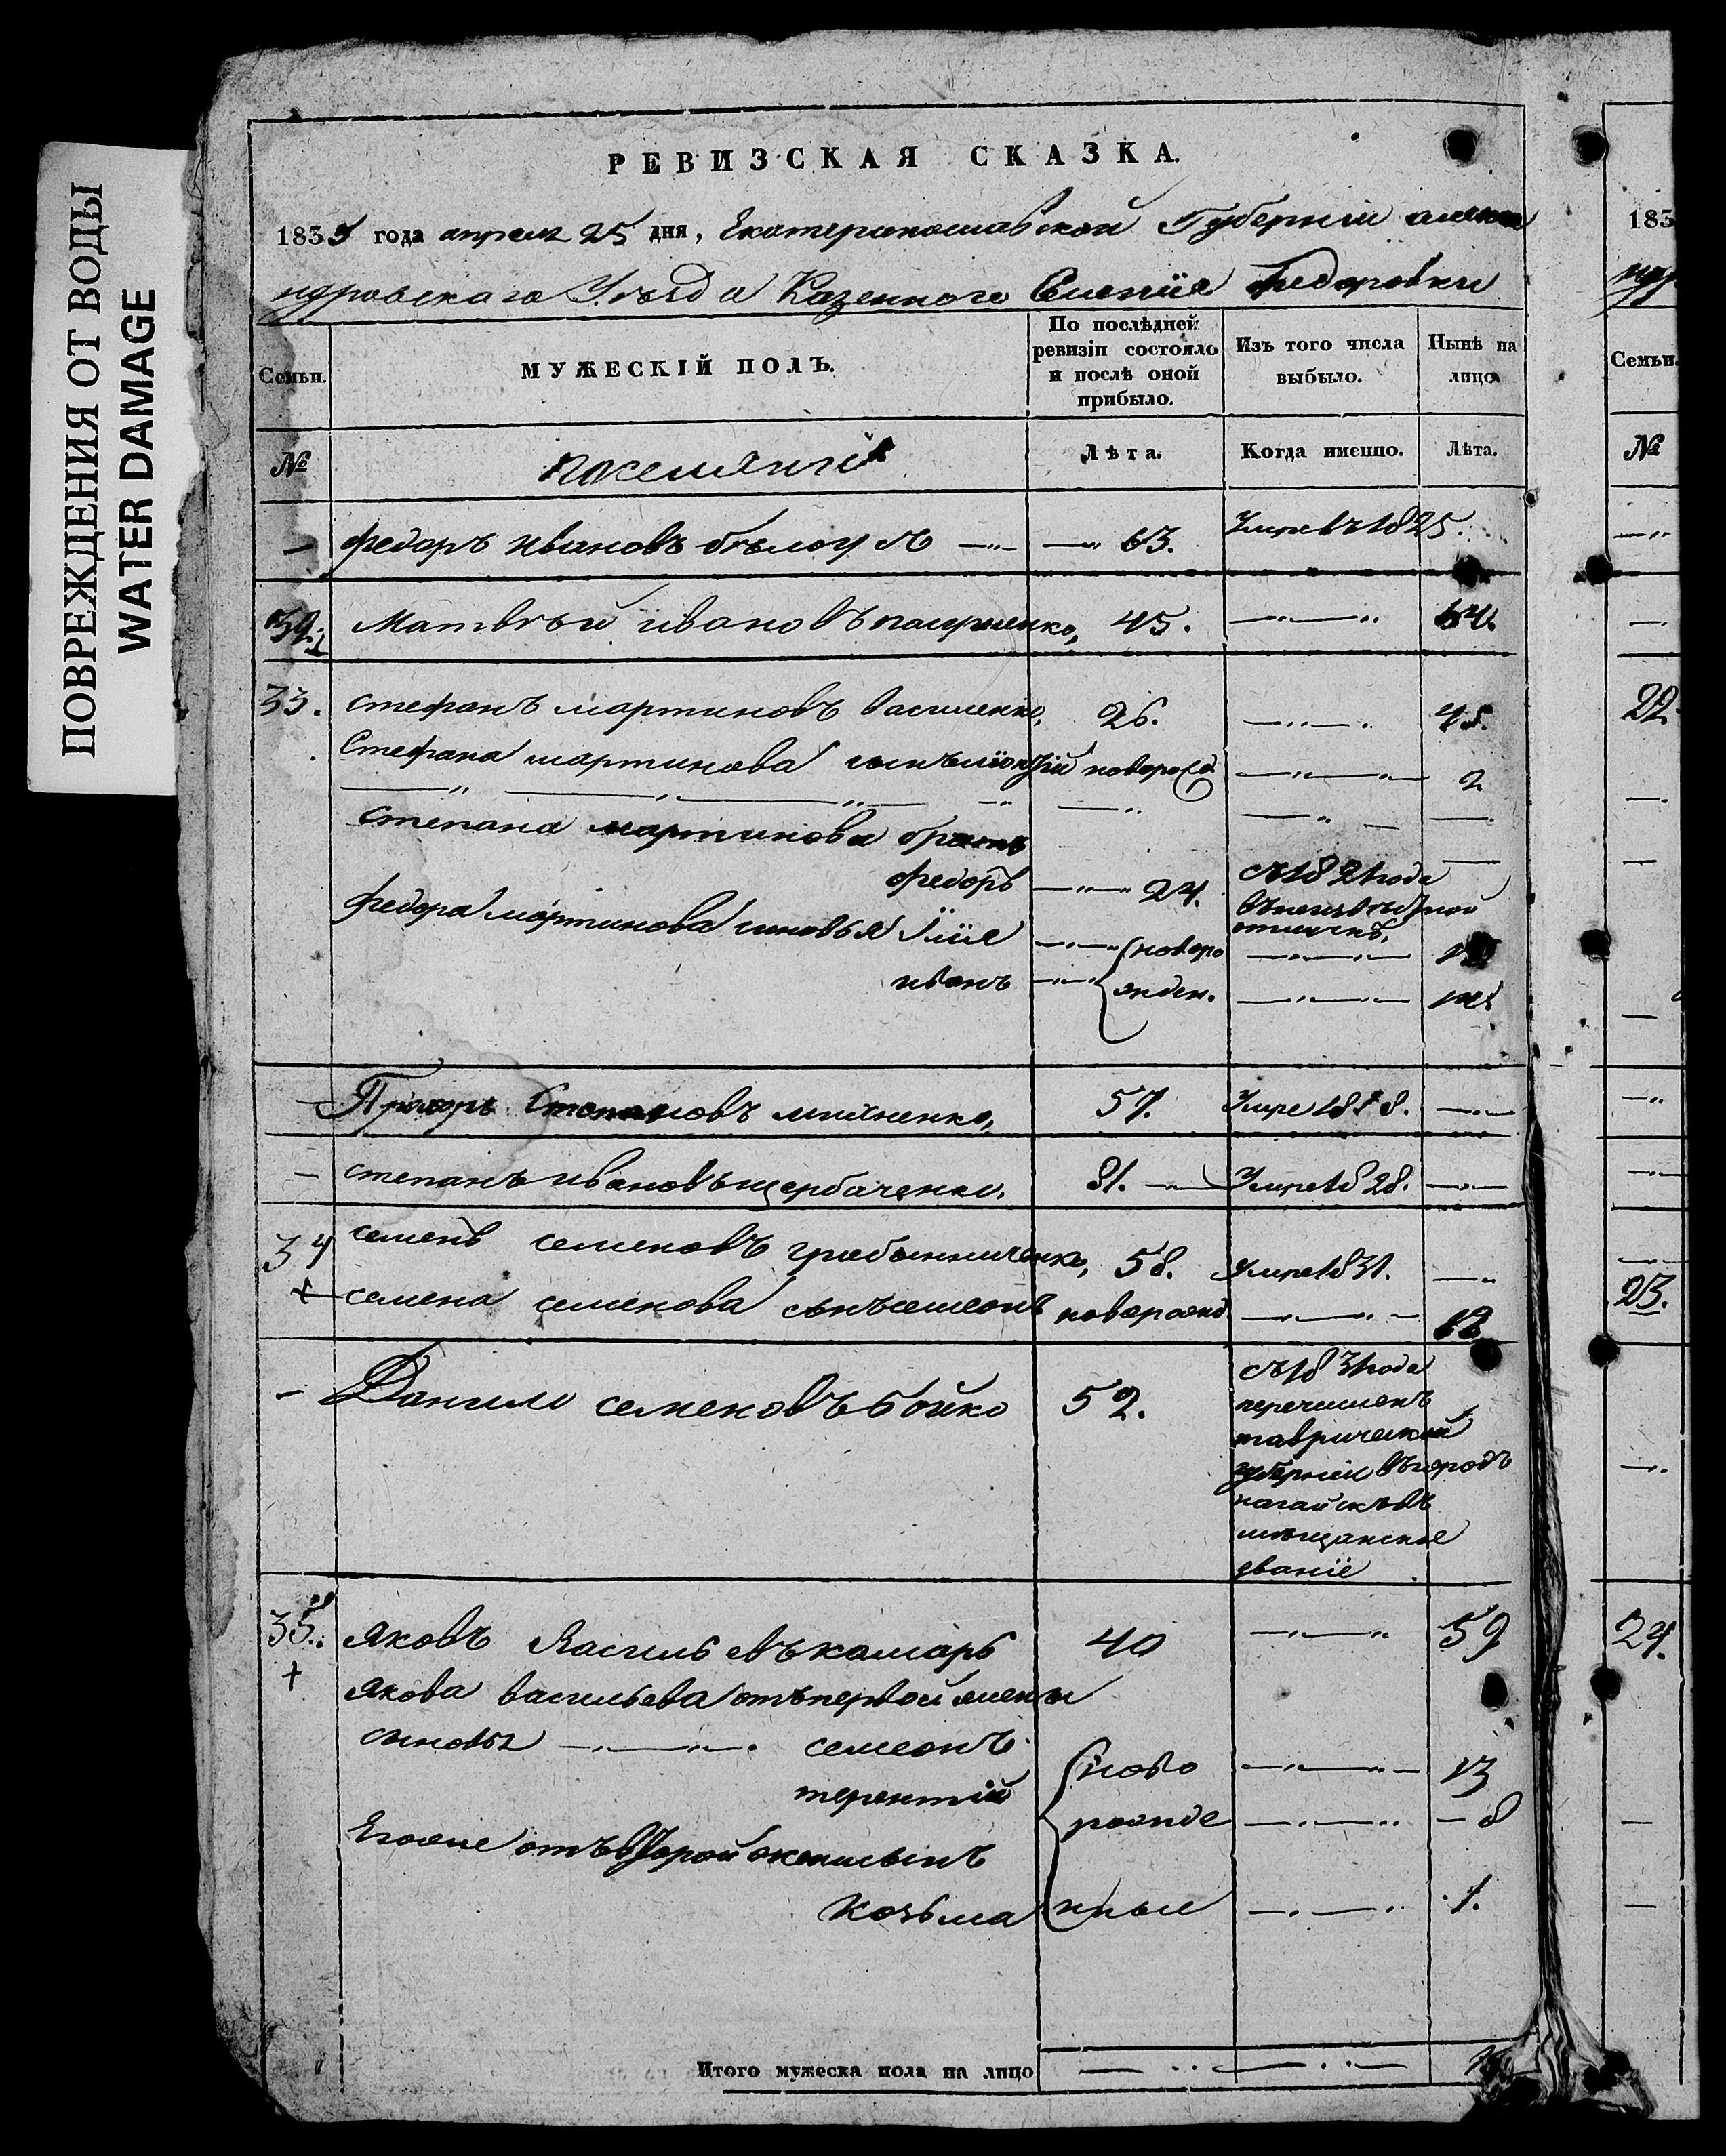 ПОВРЕЖДЕНИЯ ОТ ВОДЫ
WATER DAMAGE
РЕВИЗСКАЯ СКАЗКА.
1835 года апреля 25 дня, Екатеринославской Губернии алекса
ндровскаго Уезда Казенного Селенiя федоровки
Семьи.
МУЖЕСКІЙ ПОЛЪ.
По послѣдней ревизіи состояло и послѣ оной прибыло.
Изъ того числа выбыло.
Нынѣ на лицо
№
поселяни
Лѣта.
Когда именно.
Лѣта.
федоръ ивановъ бѣлоус 63. Умре въ 1825.
32. Матвѣй ивановъ 45. 64.
33. стефанъ мартиновъ василенко, 26. 45.
Стефана мартинова сынъ новорожд 2
степана мартинова братъ
федоръ 24. съ 1821 года
въ неизвѣстной
отлучкѣ.
федора мартинова синовья Илiя новоро
иванъ жден.
Прохоръ Степановъ михненко, 57. Умре 1818.
степанъ ивановъ щербаченко. 81. Умре 1828.
34 семенъ семеновъ гребенниченко, 58. Умре 1831.
семена семенова сынъ семеонъ новорожд 12
Данило семеновъ бойко 52. съ 1831 года
перечисленъ
таврической
губернiи въ городъ
нагайскъ въ
мѣщанское
званiе
35. яковъ Васильевъ комаръ 40 59
якова васильева отъ первой жены
сыновья семеонъ ново 13
терентiй рожде 8
Егоже отъ второй жены сынъ
козьма нные 1.
Итого мужеска пола на лицо
183
Семьи.
№
22.
23.
24.